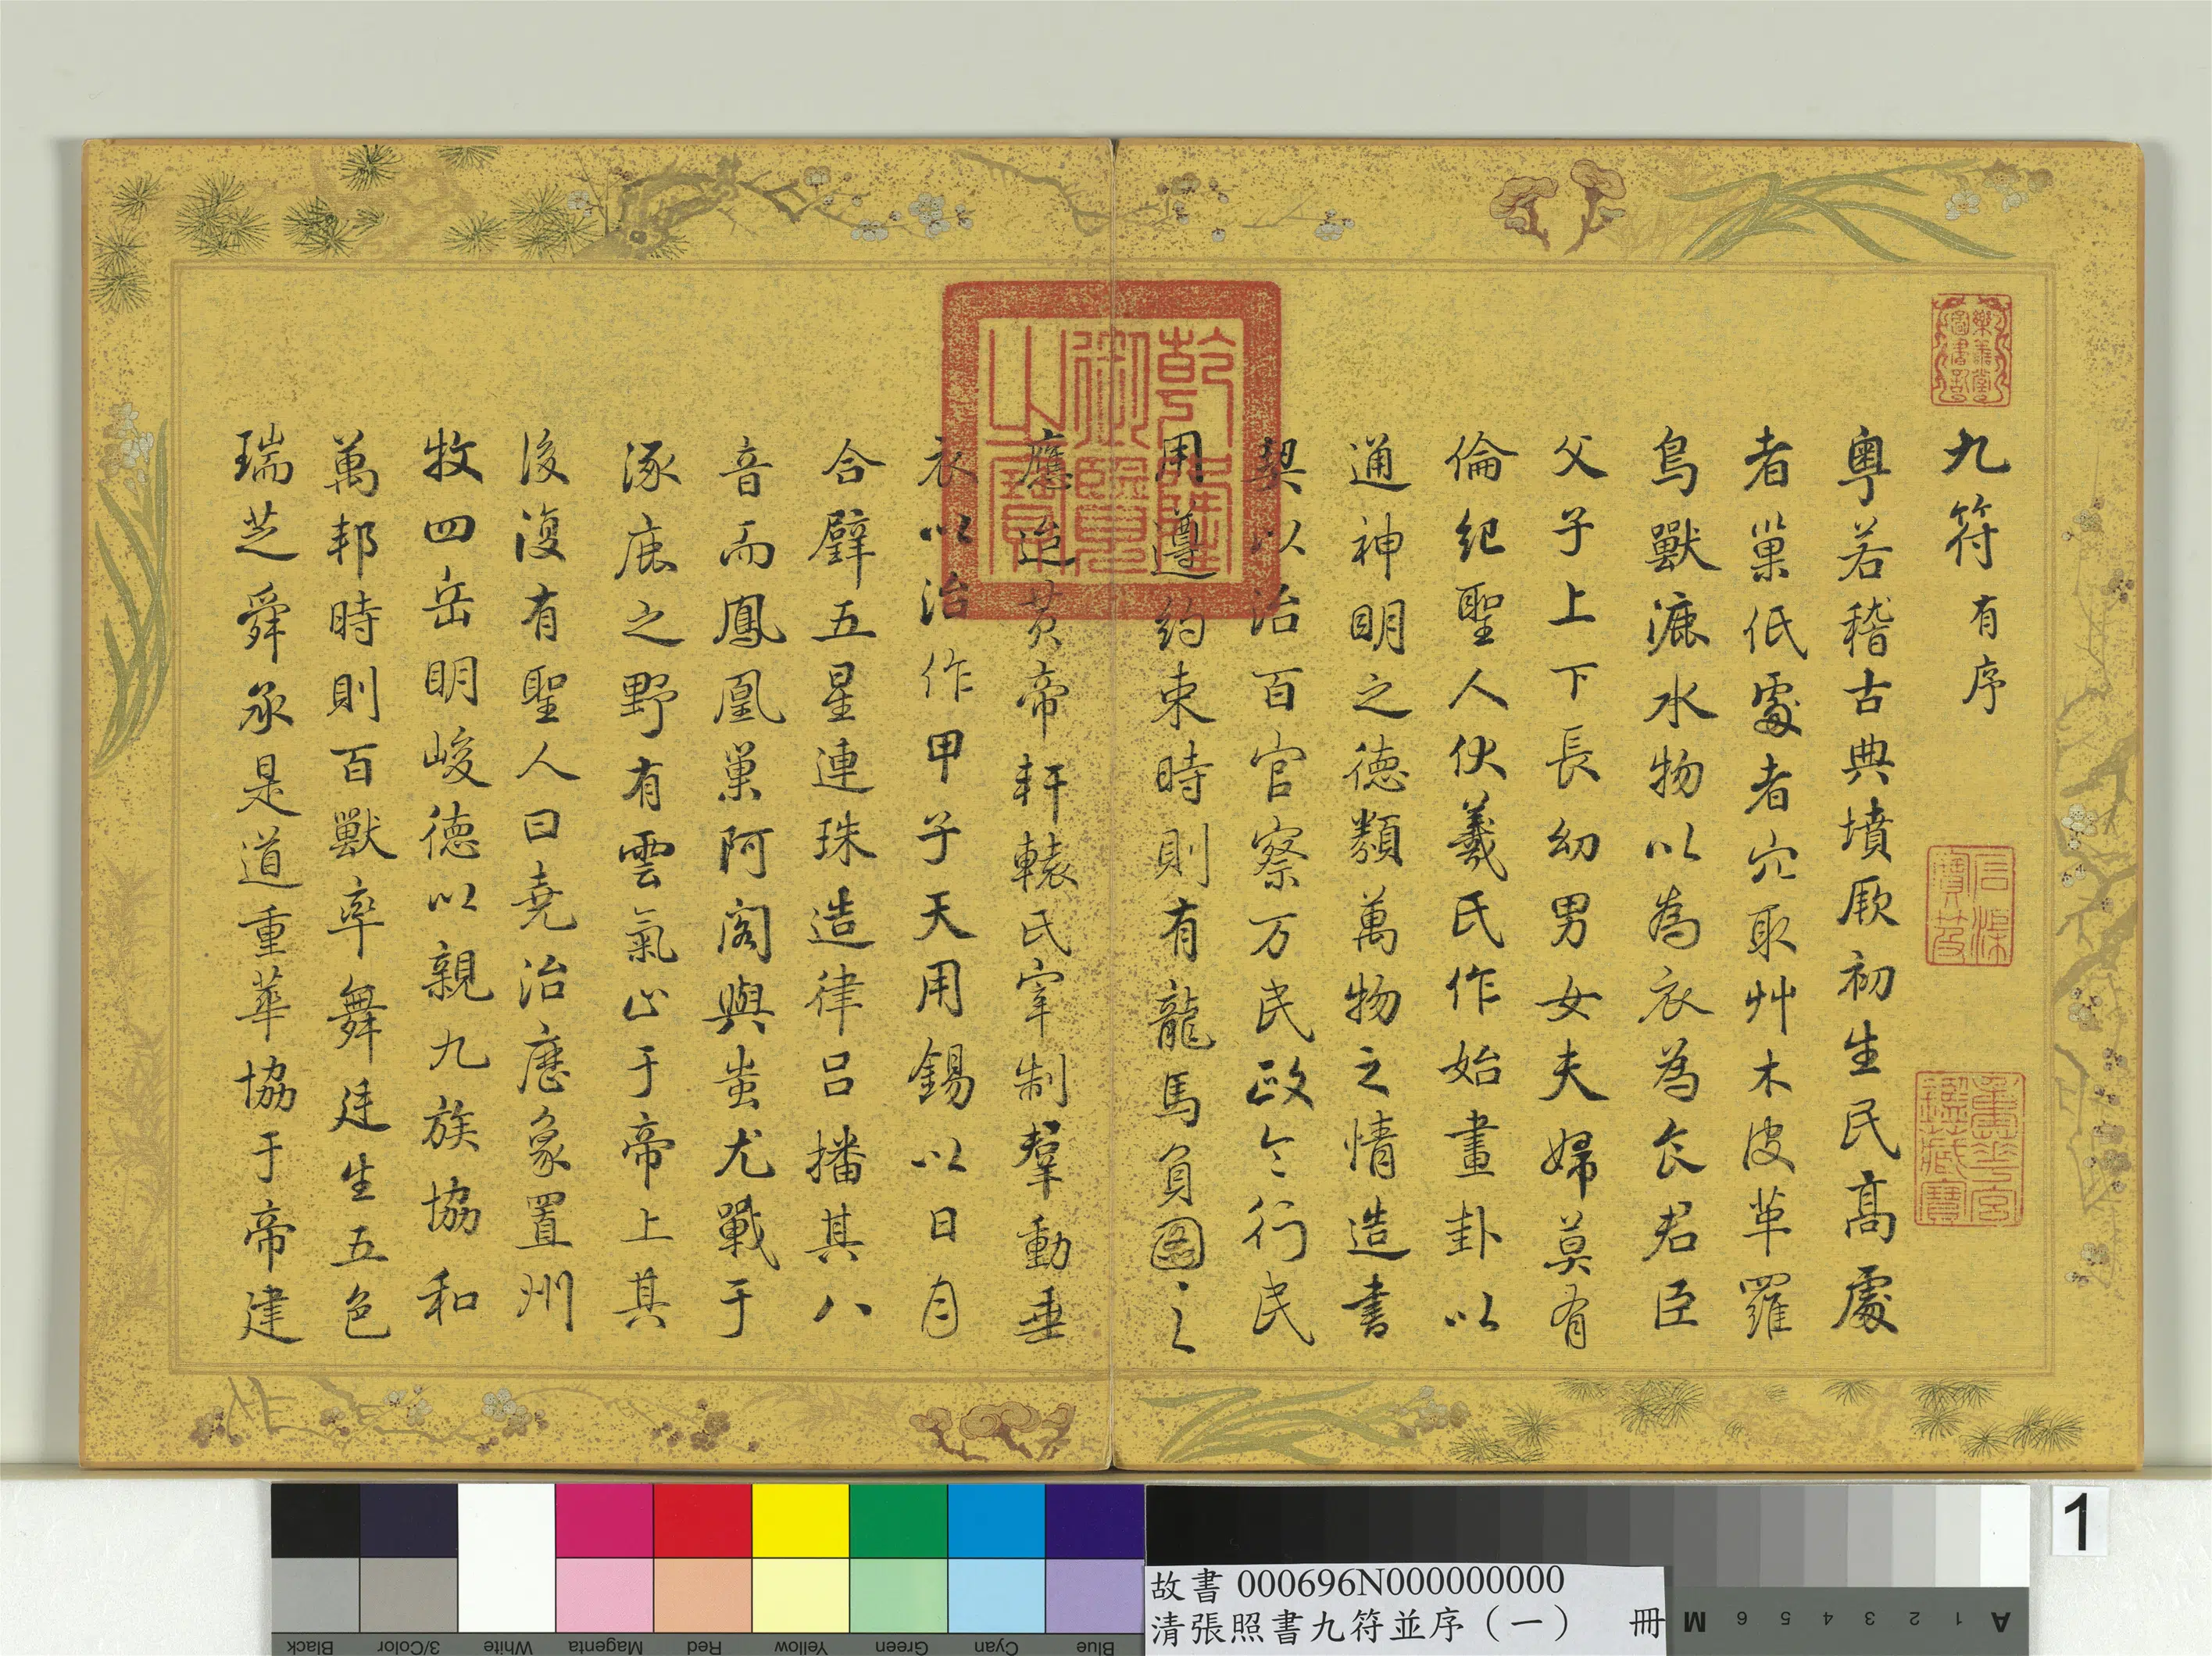 九符有序
粵若稽古典墳厥初生民高處
者巢低處者穴取艸木皮革羅
鳥獸漉水物以為衣為食君臣
父子上下長幼男女夫婦莫有
倫紀聖人伏羲氏作始畫卦以
通神明之德類萬物之情造書
契以治百官察万民政令行民
用遵約束時則有龍馬負圖之
應迨黃帝軒轅氏宰制羣動垂
衣以治作甲子天用錫以日月
合璧五星連珠造律呂播其八
音而鳳凰巢阿閣與蚩尤戰于
涿鹿之野有雲氣止于帝上其
後復有聖人曰堯治歷象置州
牧四岳明峻德以親九族協和
萬邦時則百獸率舞廷生五色
瑞芝舜承是道重華協于帝建
樂善堂圖書記
乾隆御覽之寶
重華宮鑑藏寶
Black
3/Color
White
Magenta
Red
Yellow
Green
Cyan
Blue
故書 000696N000000000
清張照書九符並序（一） 冊
M 6 5 4 3 2 1 A
1